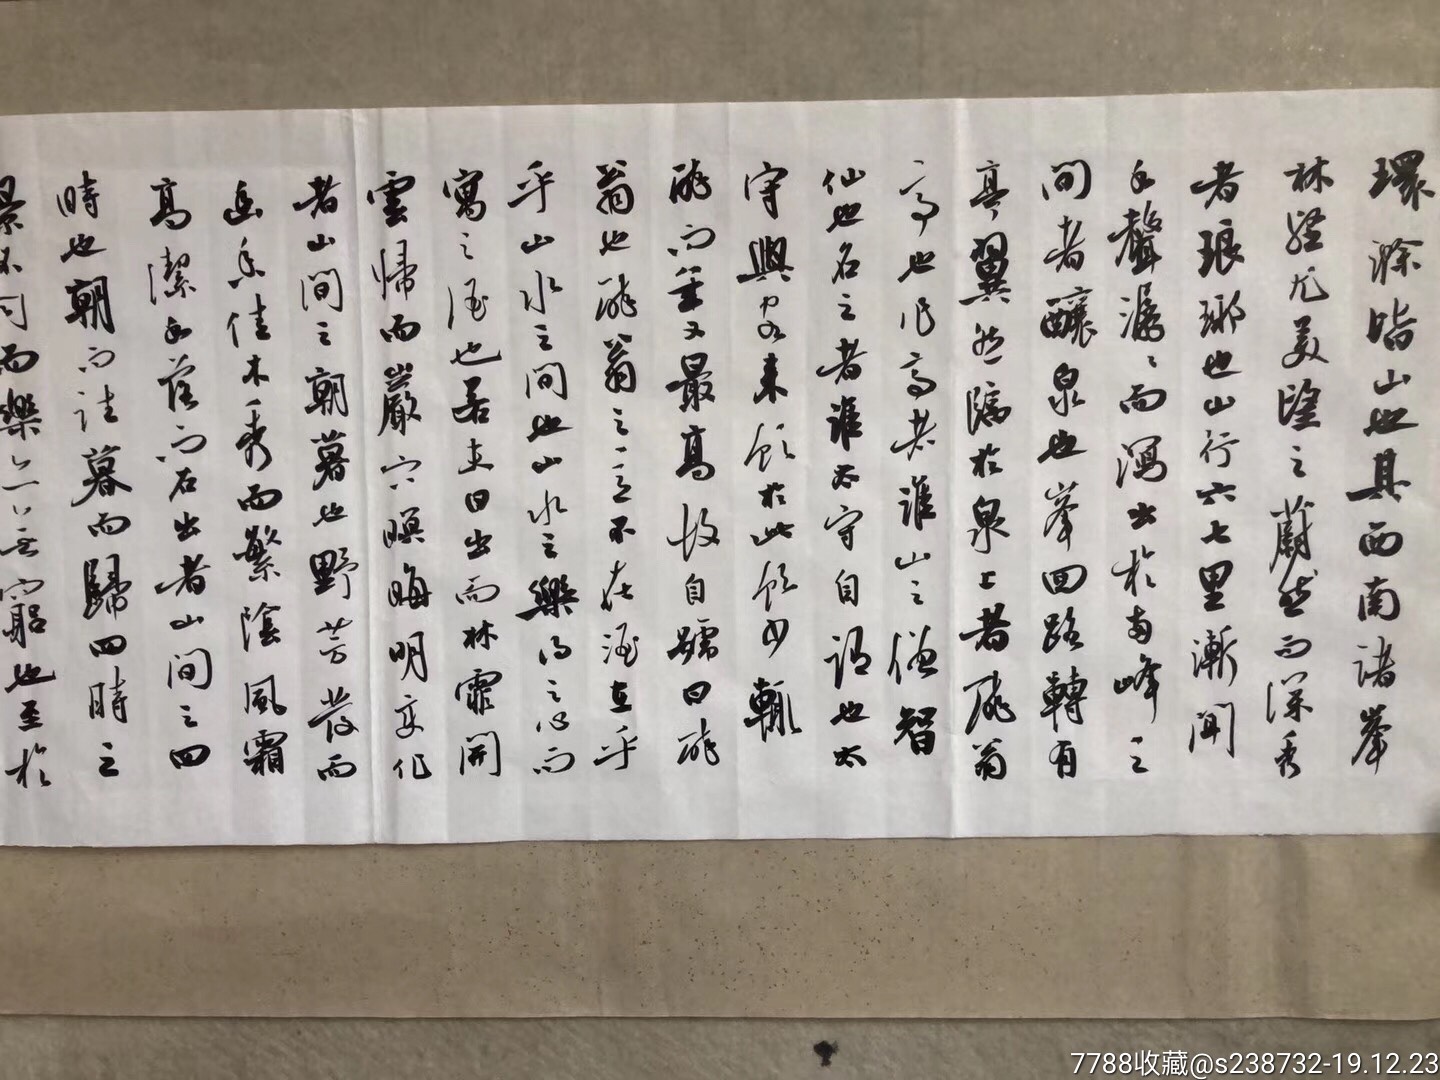 環滁皆山也其西南諸峯
林壑尤美望之蔚然而深秀
者琅琊也山行六七里漸聞
水聲潺〻而瀉出於兩峰之
間者釀泉也峯回路轉有
亭翼然臨於泉上者醉翁
亭也作亭者誰山之僧智
仙也名之者誰太守自謂也太
守與客來飲於此飲少輒
醉而年又最高故自號曰醉
翁也醉翁之意不在酒在乎
乎山水之間也山水之樂得之心而
寓之酒也若夫日出而林霏開
雲歸而巖穴暝晦明變化
者山間之朝暮也野芳發而
幽香佳木秀而繁陰風霜
高潔水落而石出者山間之四
時也朝而往暮而歸四時之
景不同而樂亦無窮也至於
7788收藏@s238732-19.12.23